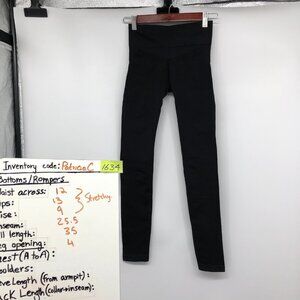 Inventory code: Patricia C 1634
Bottoms/Rompers
aist across: 12
ips: 13 Stretchy
ise: 9
nseam: 25.5
ll length: 35
eg opening: 4
est (A to A):
oulders:
eve Length (from armpit):
ack Length (collar→inseam):